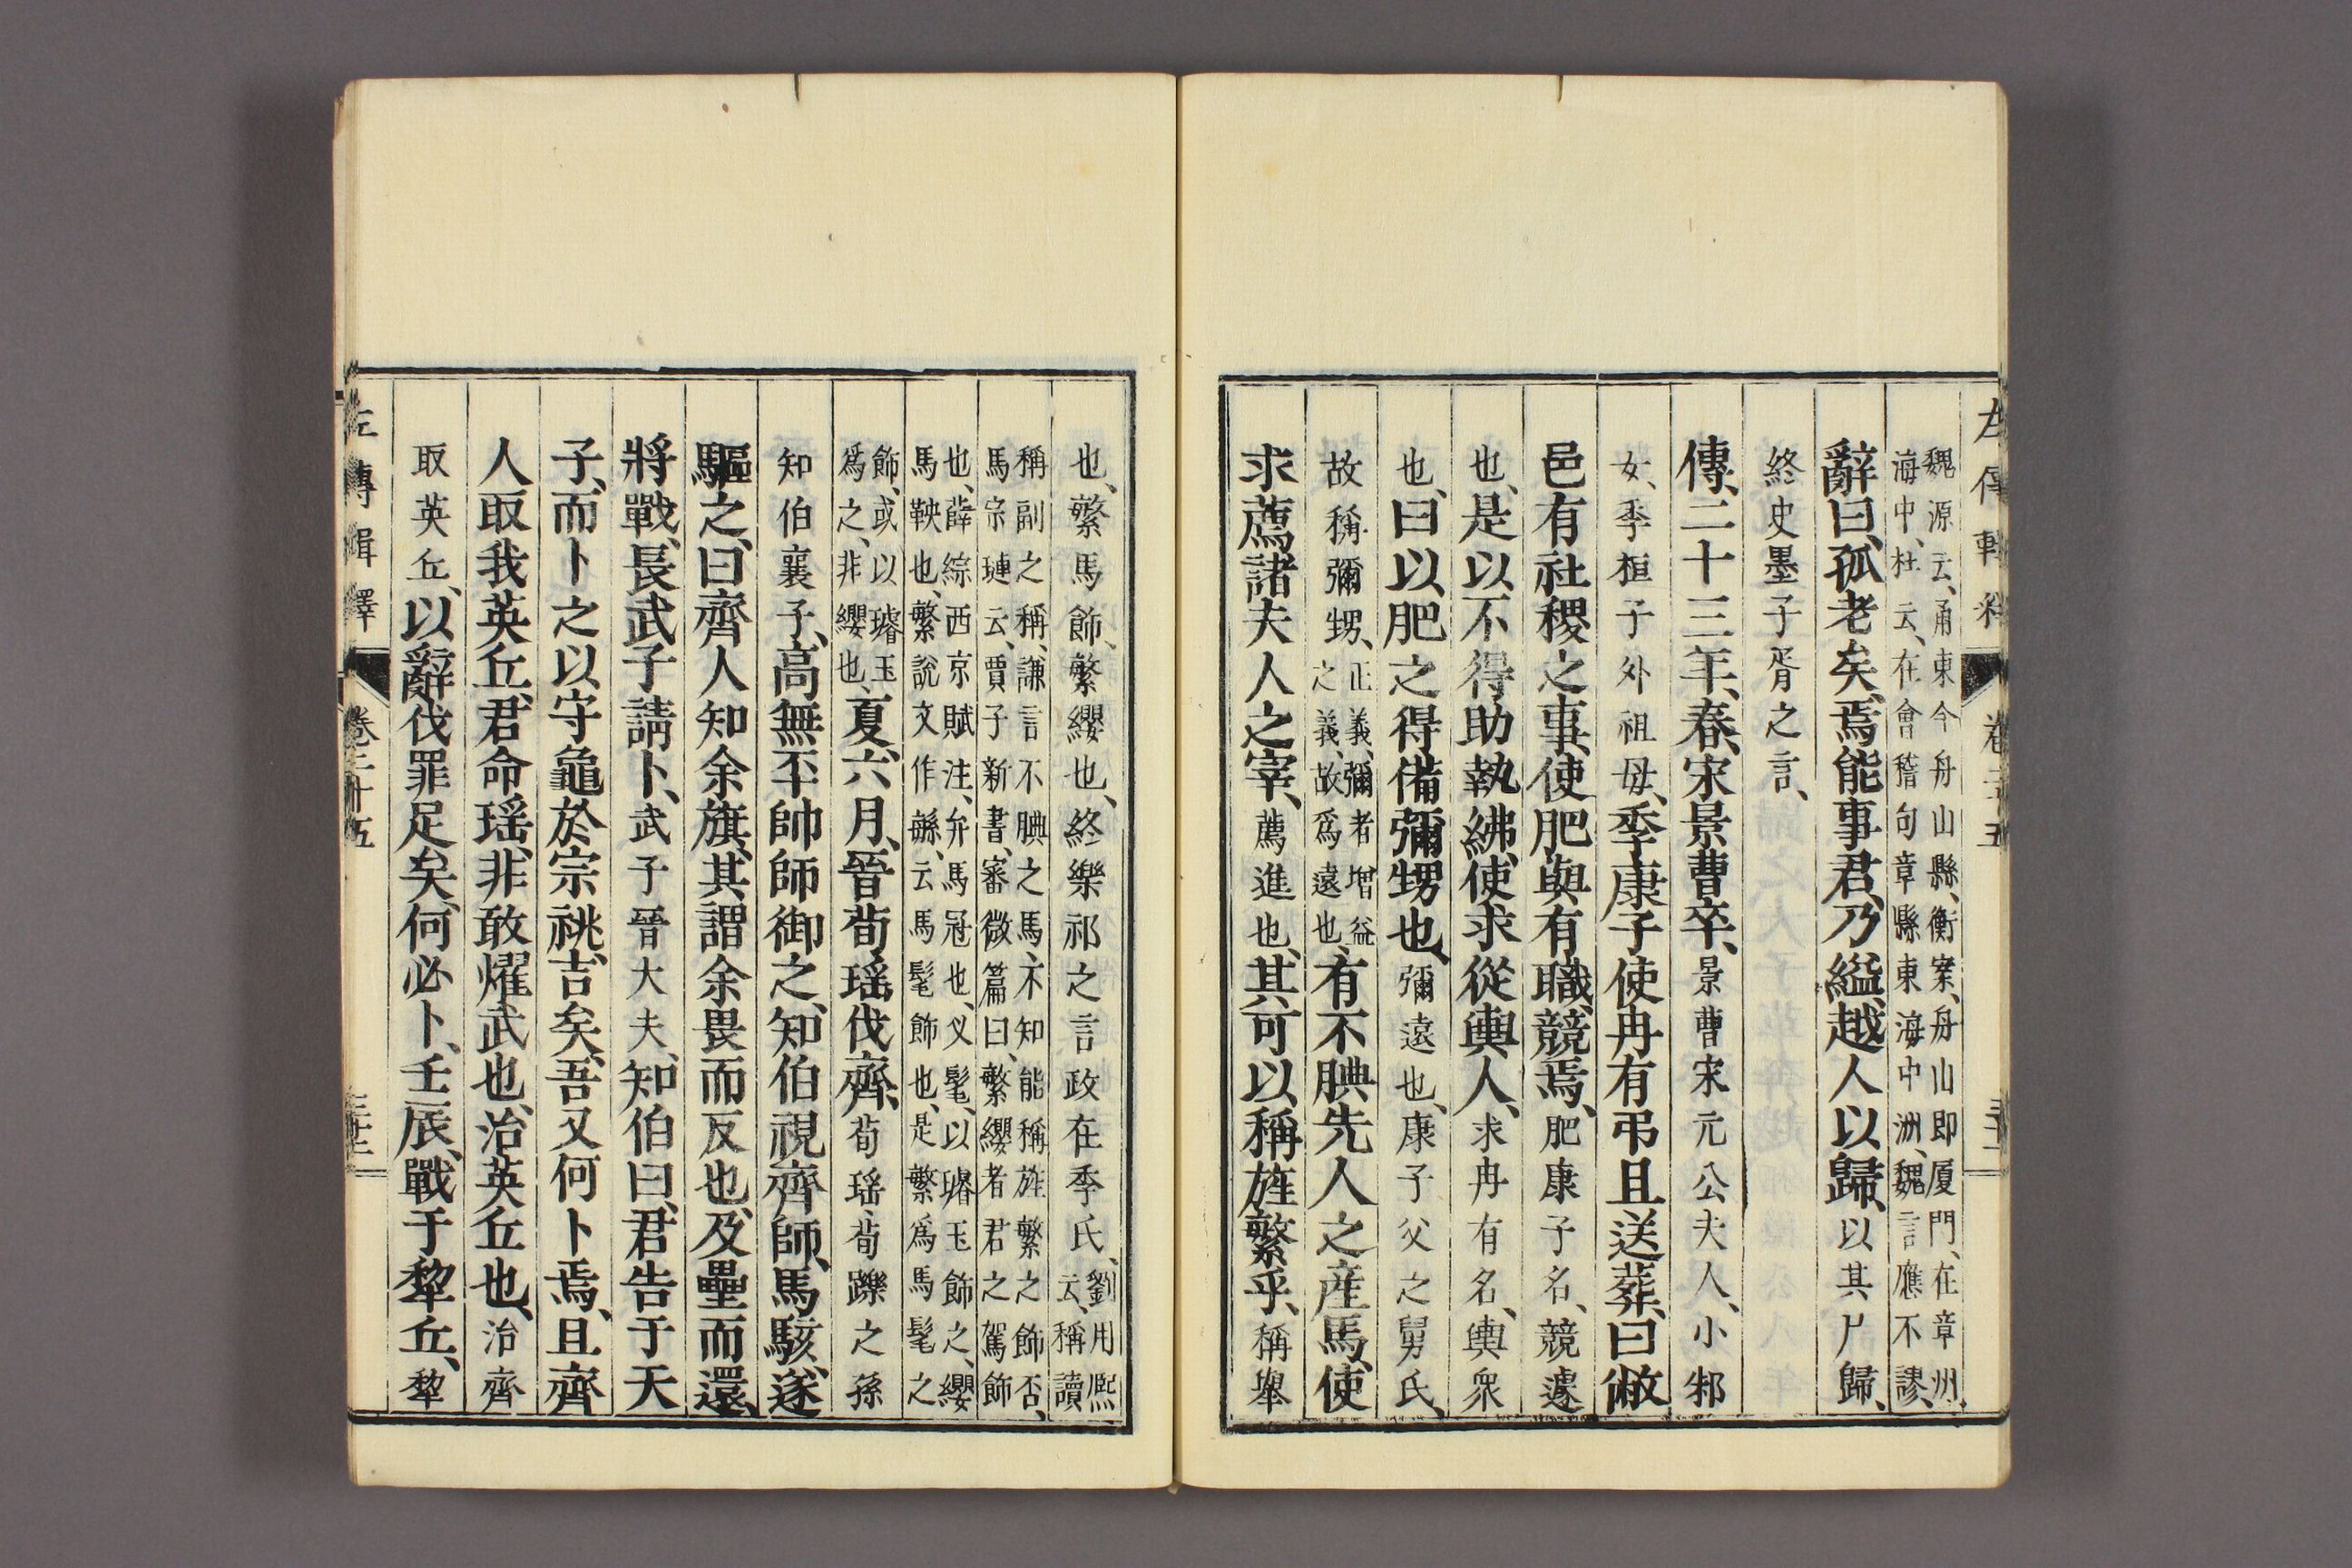 魏源云、甬東今舟山縣、衡案、舟山即厦門、在章洲、
海中、杜云、在會稽句章縣東海中洲、魏言應不謬、
辭曰、孤老矣、焉能事君、乃縊、越人以歸、以其尸歸、
終史墨子胥之言、
傳、二十三年、春、宋景曹卒、景曹宋元公夫人、小邾
女、季桓子外祖母、季康子使冉有弔且送葬、曰敝
邑有社稷之事、使肥與有職競焉、肥康子名、競遽
也、是以不得助執紼、使求從輿人、求冉有名、輿衆
也、曰以肥之得備彌甥也、彌遠也、康子父之舅氏、
故稱彌甥、正義、彌者增益之義、故爲遠也、有不腆先人之産馬、使
求薦諸夫人之宰、薦進也、其可以稱旌繁乎、稱舉
也、繁馬飾、繁纓也、終樂祁之言政在季氏、劉用熙云、稱讀
稱副之稱、謙言不腆之馬、不知能稱旌繁之飾否、
馬宗璉云、賈子新書、審微篇曰、繁纓者君之駕飾
也、薛綜西京賦注、弁馬冠也、叉髦、以璿玉飾之、纓
馬鞅也、繁說文作緐、云馬髦飾也、是繁爲馬髦之
飾、或以璿玉爲之、非纓也、夏、六月、晉荀瑤伐齊、荀瑤、荀躒之孫
知伯襄子、高無㔻帥師御之、知伯視齊師、馬駭、遂
驅之、曰齊人知余旗、其謂余畏而反也、及壘而還、
將戰、長武子請卜、武子晉大夫、知伯曰、君告于天
子、而卜之以守龜於宗祧、吉矣、吾又何卜焉、且齊
人取我英丘、君命瑤、非敢燿武也、治英丘也、治齊
取英丘、以辭伐罪足矣、何必卜、壬辰、戰于犂丘、犂
左傳輯釋 卷二十五